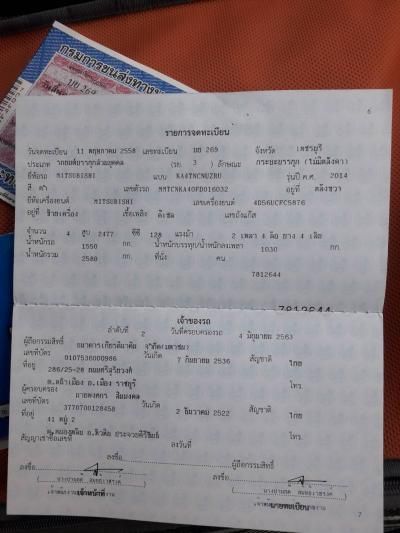 กรมการขนส่งทางบก
บย 269
6
รายการจดทะเบียน
วันจดทะเบียน 11 พฤษภาคม 2558 เลขทะเบียน บย 269 จังหวัด เพชรบุรี
ประเภท รถยนต์บรรทุกส่วนบุคคล (รย. 3 ) ลักษณะ กระบะบรรทุก (ไม่มีหลังคา)
ยี่ห้อรถ MITSUBISHI แบบ KA4TNCNUZRU รุ่นปี ค.ศ. 2014
สี ดำ เลขตัวรถ MMTCNKA40FD016032 อยู่ที่
ยี่ห้อเครื่องยนต์ MITSUBISHI เลขเครื่องยนต์ 4D56UCFC5876
อยู่ที่ เชื้อเพลิง ดีเซล เลขถังแก๊ส
จำนวน 4 สูบ 2477 ซีซี 128 แรงม้า 2 เพลา 4 ล้อ ยาง 4 เส้น
น้ำหนักรถ 1550 กก. น้ำหนักบรรทุก/น้ำหนักลงเพลา 1030 กก.
น้ำหนักรวม 2580 กก. ที่นั่ง คน
7812644
7812644
เจ้าของรถ
ลำดับที่ 2 วันที่ครอบครองรถ 4 มิถุนายน 2563
ผู้ถือกรรมสิทธิ์ ธนาคารเกียรตินาคิน จำกัด(มหาชน)
เลขที่บัตร 0107536000986 วันเกิด 7 กันยายน 2536 สัญชาติ ไทย
ที่อยู่ 286/25-28 ถนนศรีสุริยวงศ์
ต.หน้าเมือง อ.เมือง ราชบุรี โทร.
ผู้ครอบครอง
เลขที่บัตร 3770700128458 วันเกิด 2 ธันวาคม 2522 สัญชาติ ไทย
ที่อยู่ 41 หมู่ 2
อ.หัวหิน ประจวบคีรีขันธ์ โทร.
สัญญาเช่าซื้อเลขที่ ลงวันที่
ลงชื่อ ผู้ถือกรรมสิทธิ์
ลงชื่อ ลงชื่อ
เจ้าหน้าที่ นายทะเบียน
7